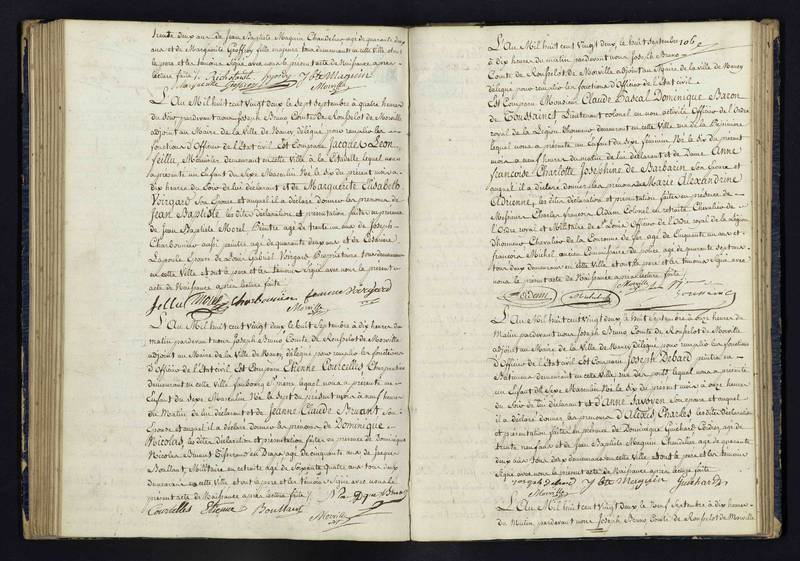 trente deux ans de Jean Baptiste Maguin Chandelier agé de quarante deux
ans et de Marguerite Geoffroy fille majeure tous demeurant en cette Ville et ont
le pere et les témoins signé avec nous le présent acte de Naissance après
lecture faite
Marguerite Geoffroy J Bte Maguin
Morville
L'An Mil huit cent Vingt deux le Sept Septembre à quatre heures
du Soir pardevant nous Joseph Bruno Comte De Ronfelot de Morville
adjoint au Maire de la Ville de Nancy délégué pour remplir les
fonctions d'Officier de l'Etat civil Est Comparu Jacques Leon
feillu, Menuisier demeurant en cette Ville à la Citadelle lequel nous
a présenté un Enfant du Sexe Masculin Né le Six du présent mois à
dix heures du Soir de lui déclarant et de Marguerite Elisabeth
Voirgard Son Epouse et auquel il a déclaré donner les prenoms de
Jean Baptiste les dites Déclaration et présentation faites en présence
de Jean Baptiste Morel Peintre agé de trente un ans de Joseph
Charbonnier aussi peintre agé de quarante deux ans et de
Lapoule Epouse de Louis Gabriel Voirgard Propriétaire tous demeurant
en cette Ville et ont le pere et les témoins Signé avec nous le présent
acte de Naissance après lecture faite
Morel Charbonnier femme Voirgard
Morville
L'An Mil huit cent Vingt deux le huit Septembre à dix heures du
matin pardevant nous Joseph Bruno Comte de Ronfelot de Morville
adjoint au Maire de la Ville de Nancy délégué pour remplir les fonctions
d'Officier de l'Etat civil Est Comparu Etienne Courcelles Charpentier
demeurant en cette Ville faubourg St pierre lequel nous a présenté un
Enfant du Sexe Masculin Né le Sept du présent mois à neuf heures
du Matin de lui déclarant et de Jeanne Claude Bruant Son
Epouse et auquel il a déclaré donner les prenoms de Dominique
Nicolas les dites Déclaration et présentation faites en présence de Dominique
Nicolas Bruant Tisserand en Draps agé de cinquante ans de Jacques
Boullant Militaire en retraite agé de Soixante Quatre ans tous deux
demeurant en cette Ville et ont le pere et les témoins Signé avec nous le
présent acte de Naissance après lecture faite
Courcelles Etienne Boullant
Morville
L'An Mil huit cent Vingt deux, le huit Septembre 106
à dix heures du matin pardevant nous Joseph Bruno
Comte de Ronfelot de Morville adjoint au Maire de la Ville de Nancy
délégué pour remplir les fonctions d'Officier de l'Etat civil
Est Comparu Monsieur Claude Pascal Dominique Baron
de Toussainct Lieutenant colonel en non activité Officier de l'Ordre
royal de la Légion d'honneur demeurant en cette Ville rue de la Pépinière
lequel nous a présenté un Enfant du Sexe féminin Né le Six du présent
mois à neuf heures du matin de lui déclarant et de Dame Anne
françoise Charlotte Josephine de Barbarin Son Epouse et
auquel il a déclaré donner les prenoms de Marie Alexandrine
Adrienne, les dites déclaration et présentation faites en présence de
Messieurs Charles françois Adam Colonel en retraite Chevalier de
l'Ordre royal et Militaire de St Louis Officier de l'Ordre royal de la Légion
d'honneur Chevalier de la Couronne de fer agé de Cinquante un ans et
françois Michel, ancien Commissaire de police agé de quarante sept ans
tous deux demeurant en cette Ville et ont le pere et les témoins Signé avec
nous le présent acte de Naissance après lecture faite
Adam Michel Morville
L'An Mil huit cent Vingt deux le huit Septembre à onze heures du
Matin pardevant nous Joseph Bruno Comte de Ronfelot de Morville
adjoint au Maire de la Ville de Nancy délégué pour remplir les fonctions
d'Officier de l'Etat civil Est Comparu Joseph Debard peintre en
Bâtimens demeurant en cette Ville rue des ponts lequel nous a présenté
un Enfant du Sexe Masculin Né le Six du présent mois à onze heures
du Soir de lui déclarant et d'Anne Savoyen Son épouse et auquel
il a déclaré donner les prenoms d'Alexis Charles les dites Déclaration
et présentation faites en présence de Dominique Guichard Cordier agé de
trente neuf ans et de Jean Baptiste Maguin Chandelier agé de quarante
deux ans tous deux demeurant en cette Ville et ont le pere et les témoins
Signé avec nous le présent acte de Naissance après lecture faite
Joseph Debard J Bte Maguin Guichard
Morville
L'An Mil huit cent Vingt deux le Neuf Septembre à dix heures
du Matin pardevant nous Joseph Bruno Comte de Ronfelot de Morville